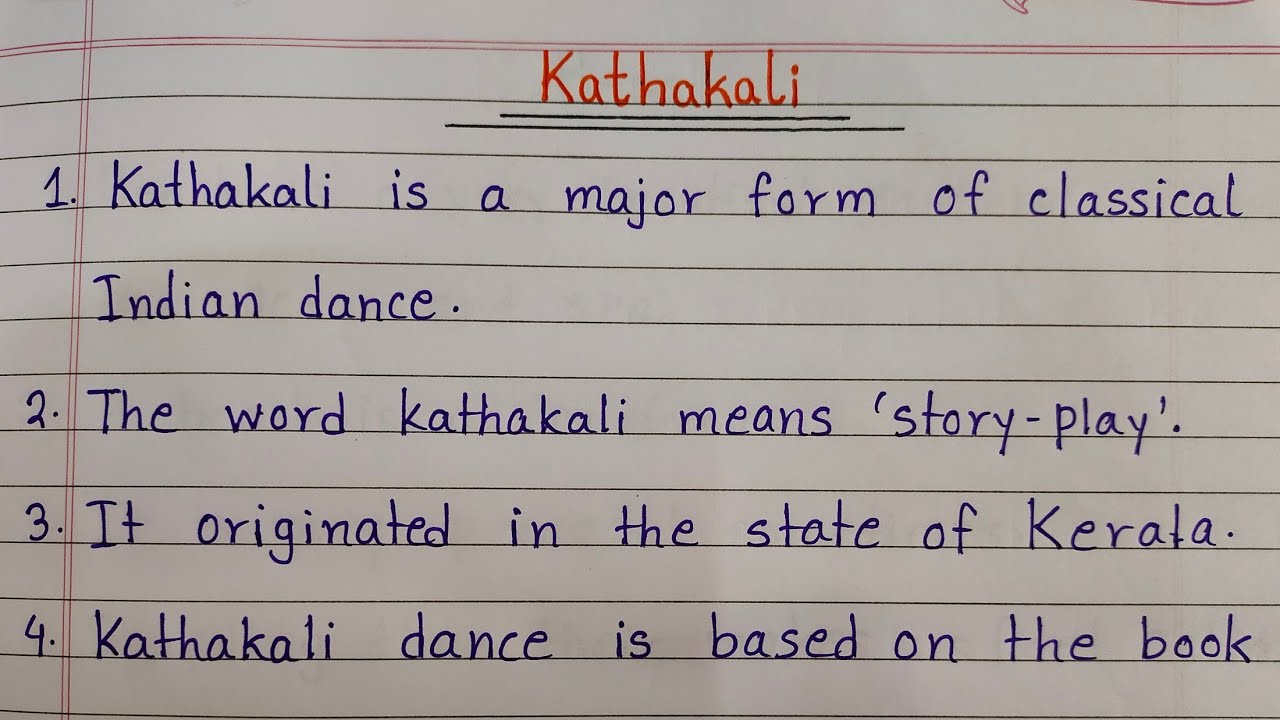 Kathakali
1. Kathakali is a major form of classical
Indian dance.
2. The word kathakali means 'story-play'.
3. It originated in the state of Kerala.
4. Kathakali dance is based on the book